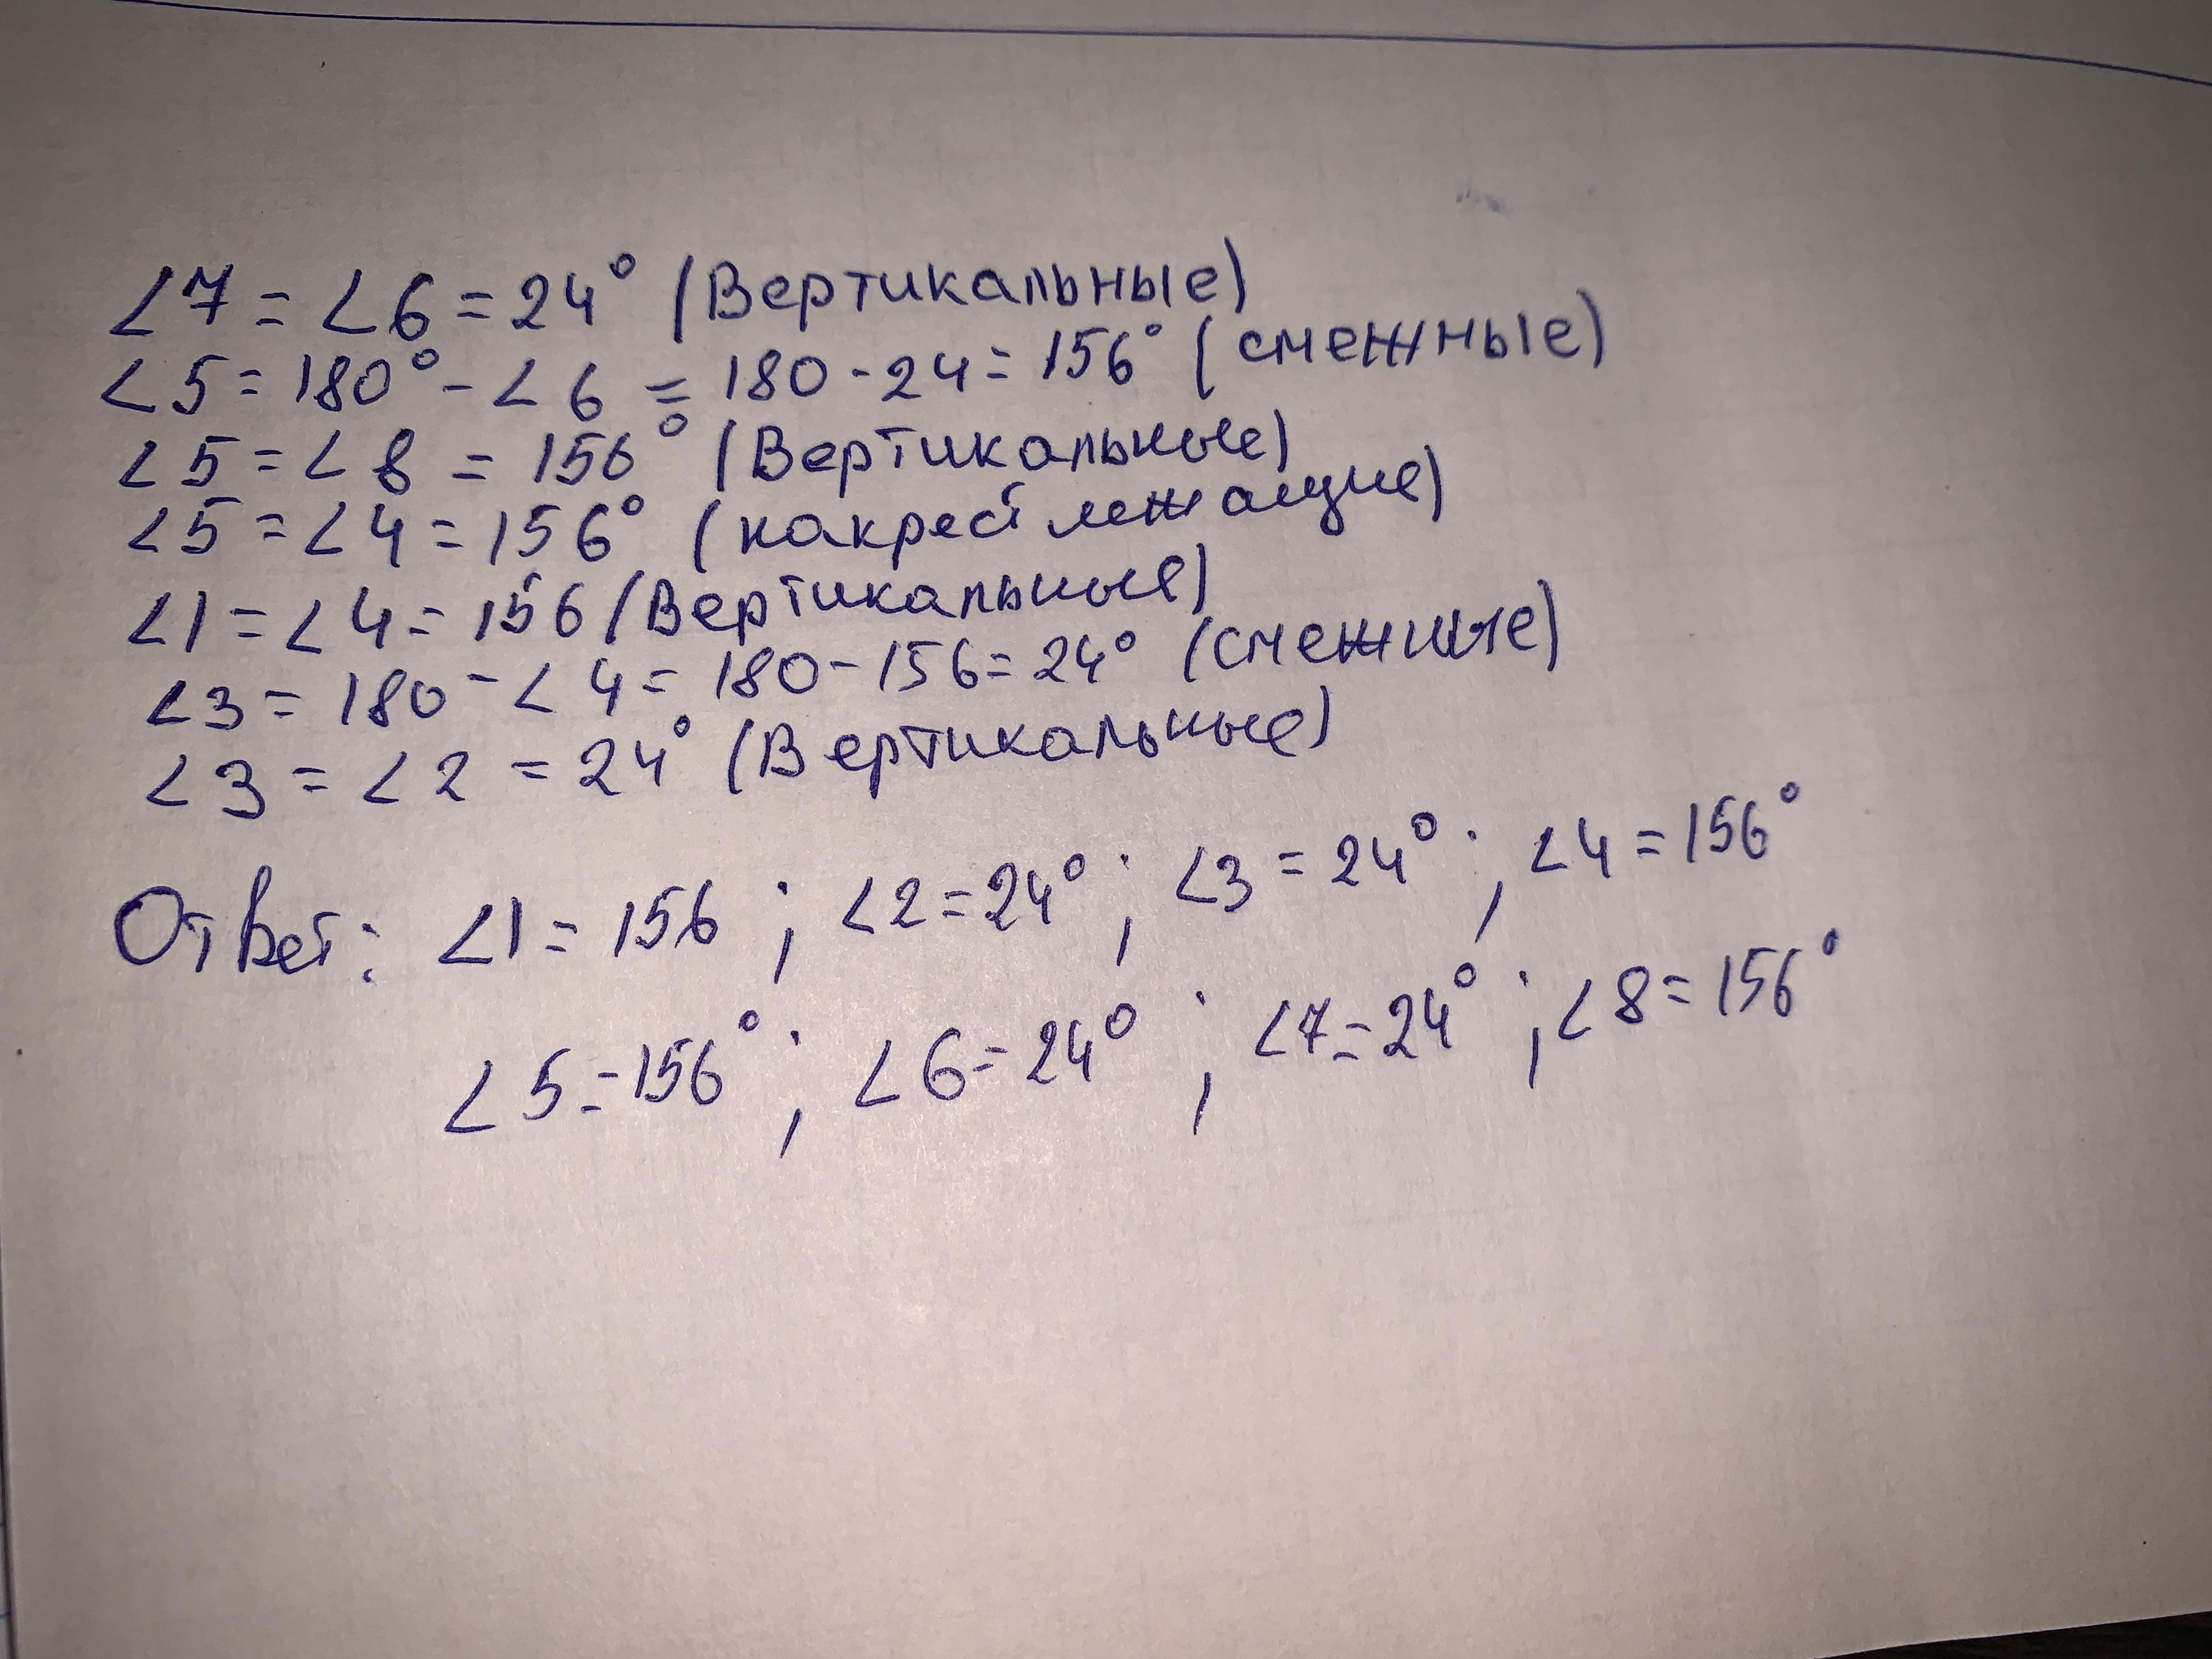 ∠7 = ∠6 = 24° (Вертикальные)
∠5 = 180° - ∠6 = 180 - 24 = 156° (смежные)
∠5 = ∠8 = 156° (Вертикальные)
∠5 = ∠4 = 156° (накрест лежащие)
∠1 = ∠4 = 156 (Вертикальные)
∠3 = 180 - ∠4 = 180 - 156 = 24° (смежные)
∠3 = ∠2 = 24° (Вертикальные)
Ответ: ∠1 = 156 ; ∠2 = 24° ; ∠3 = 24° ; ∠4 = 156°
∠5 = 156° ; ∠6 = 24° ; ∠7 = 24° ; ∠8 = 156°